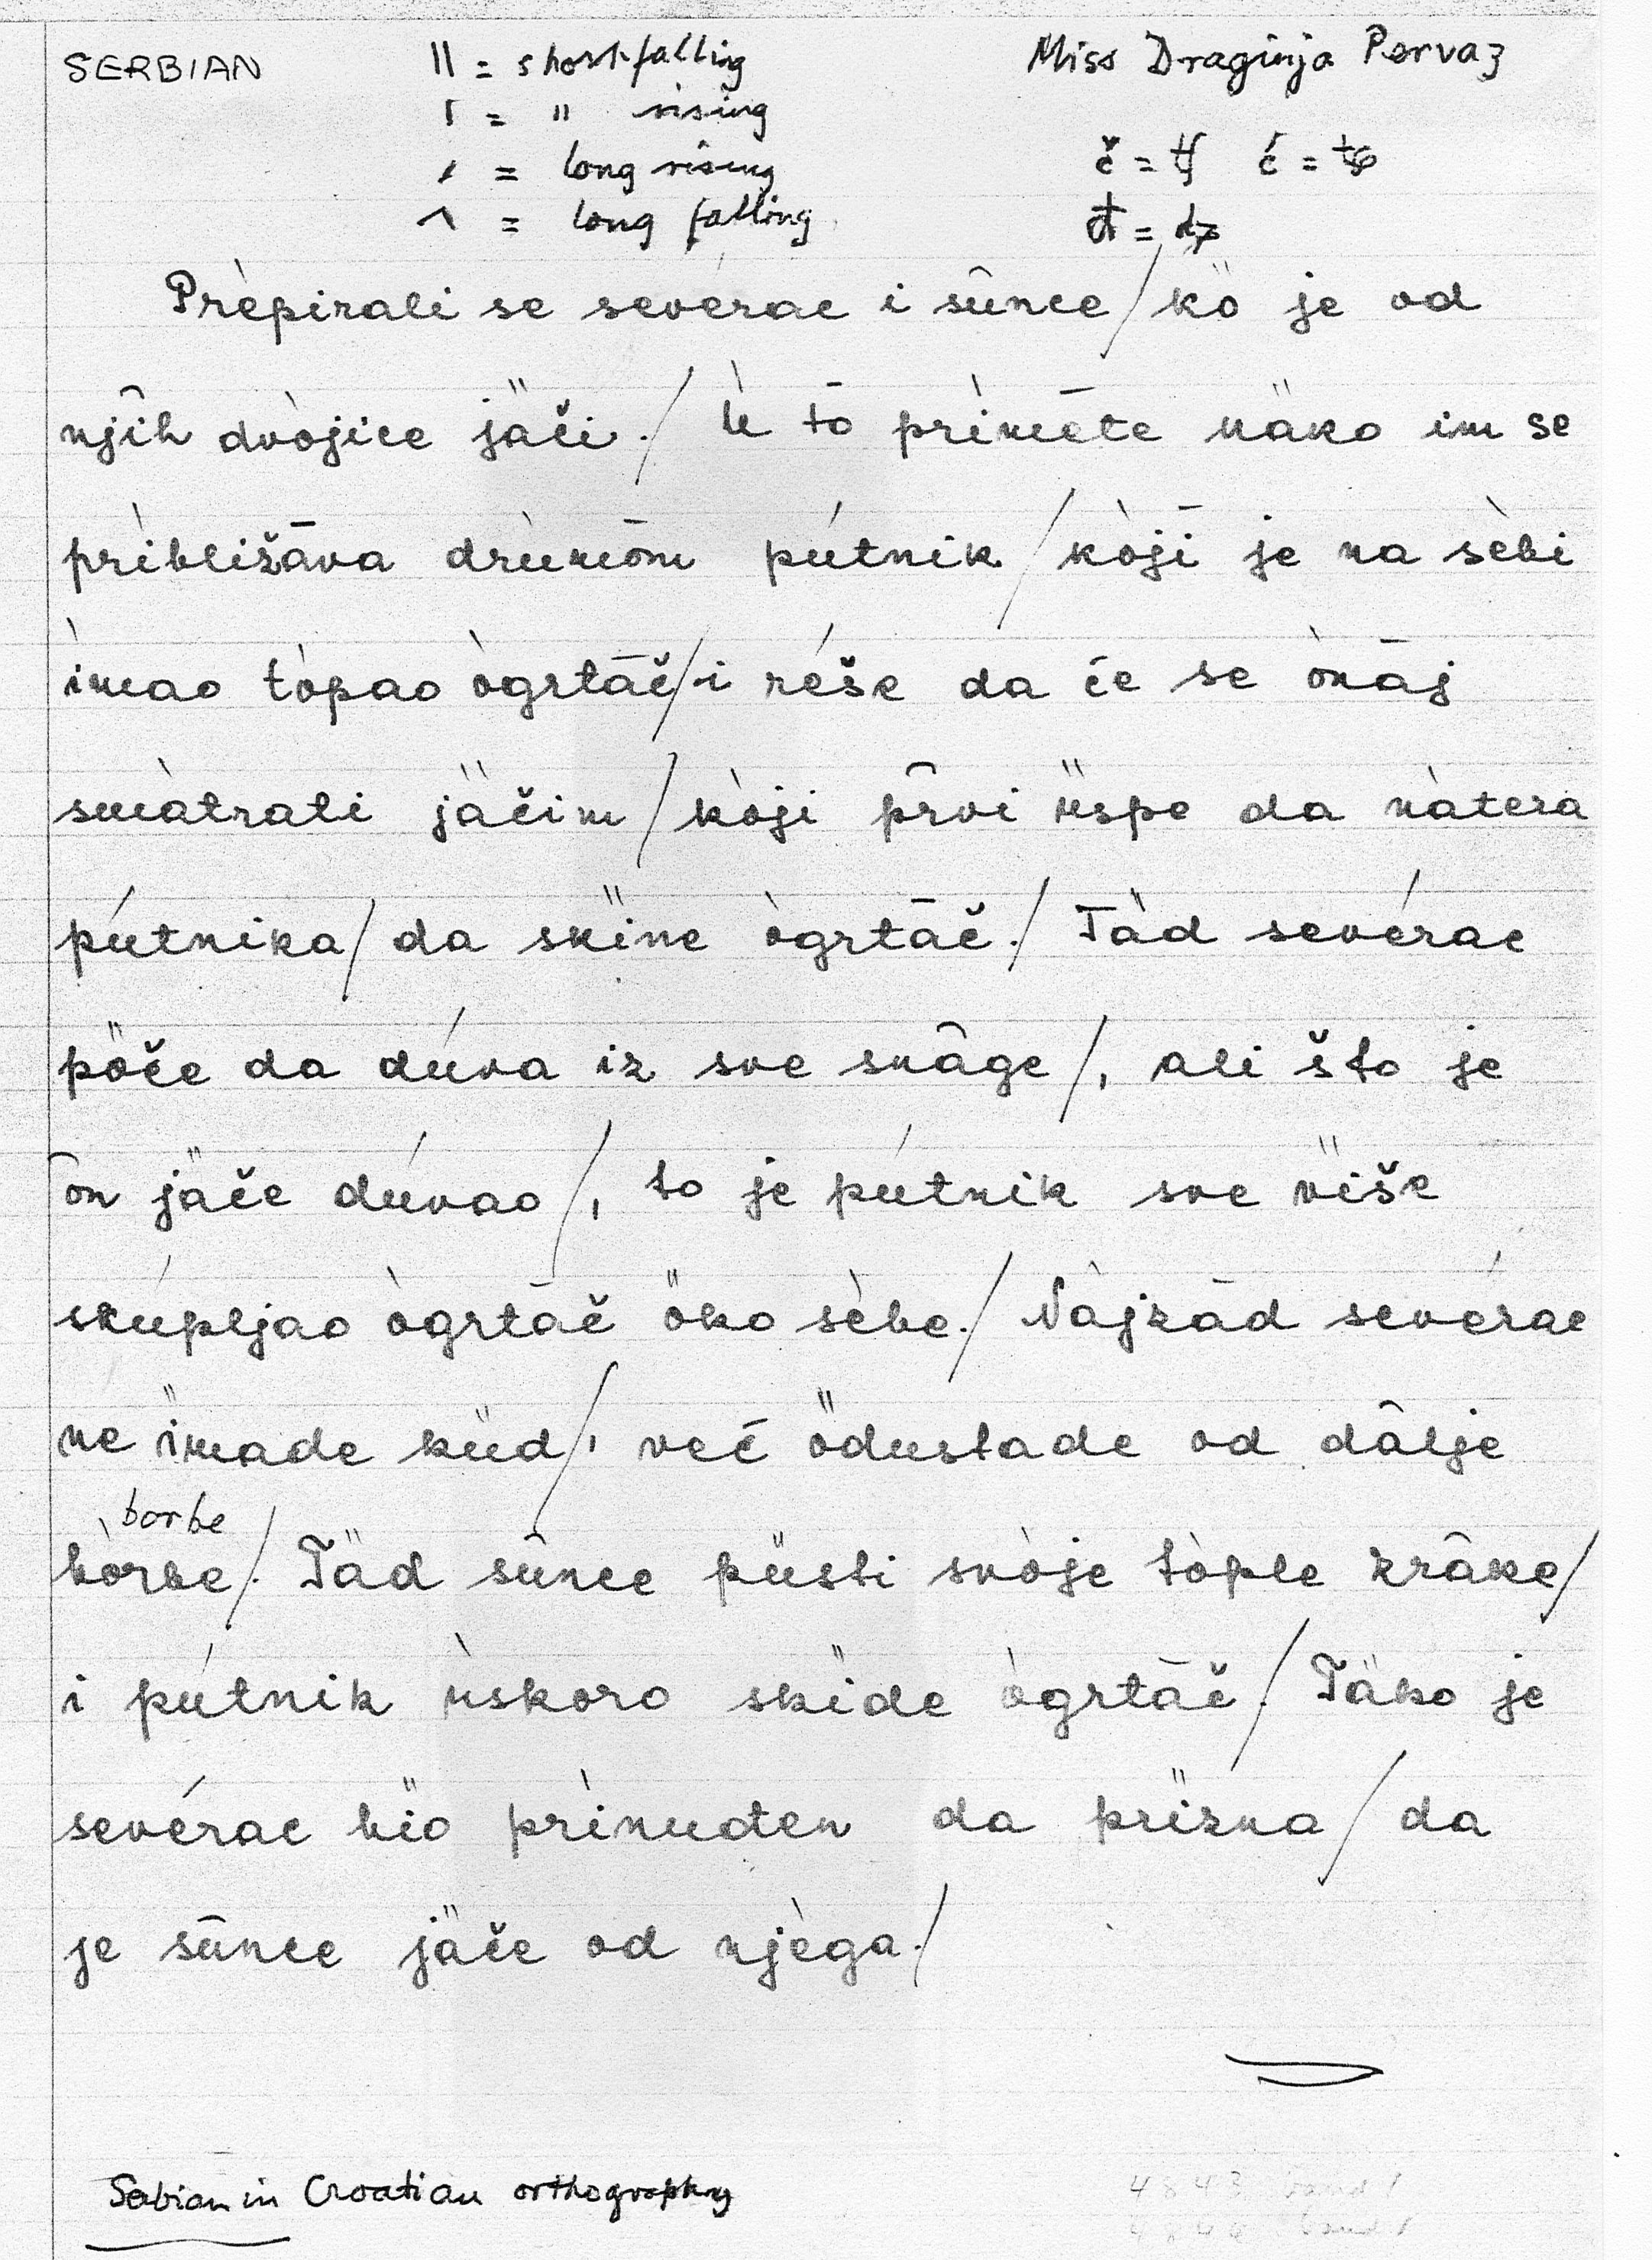 SERBIAN
\\ = short-falling
\ = " rising
/ = long rising
^ = long falling
Miss Draginja Pervaz
č = tʃ ć = tɕ
đ = dʑ
Prèpirali se sevérac i sȗnce / kȍ je od
njȋh dvòjice jȁči. / Ù tō prìmēte nȁko im se
priblìžāva drùmōm pútnik / kòjī je na sèbi
ìmao tòpao ògrtāč / i réše da će se ònāj
smàtrati jȁčim / kòji pȓvi ȕspe da nàtera
pútnika / da skȉne ògrtāč. / Tȁd sevérac
pȍče da dúva iz sve snȃge /, ali što je
ȏn jȁče dúvao /, to je pútnik sve vȉše
skúpljao ògrtāč ȍko sèbe. / Nàjzād sevérac
ne ȉmade kȕd /, već ȍdustade od dȃlje
borbe
bòrbe /. Tȁd sȗnce pȕsti svòje tòple zrȃke /
i pútnik ùskoro skȉde ògrtāč. / Tȁko je
sevérac bȉo prìnuđen da prȉzna / da
je sȗnce jȁče od njèga. /
Sebian in Croatian orthography